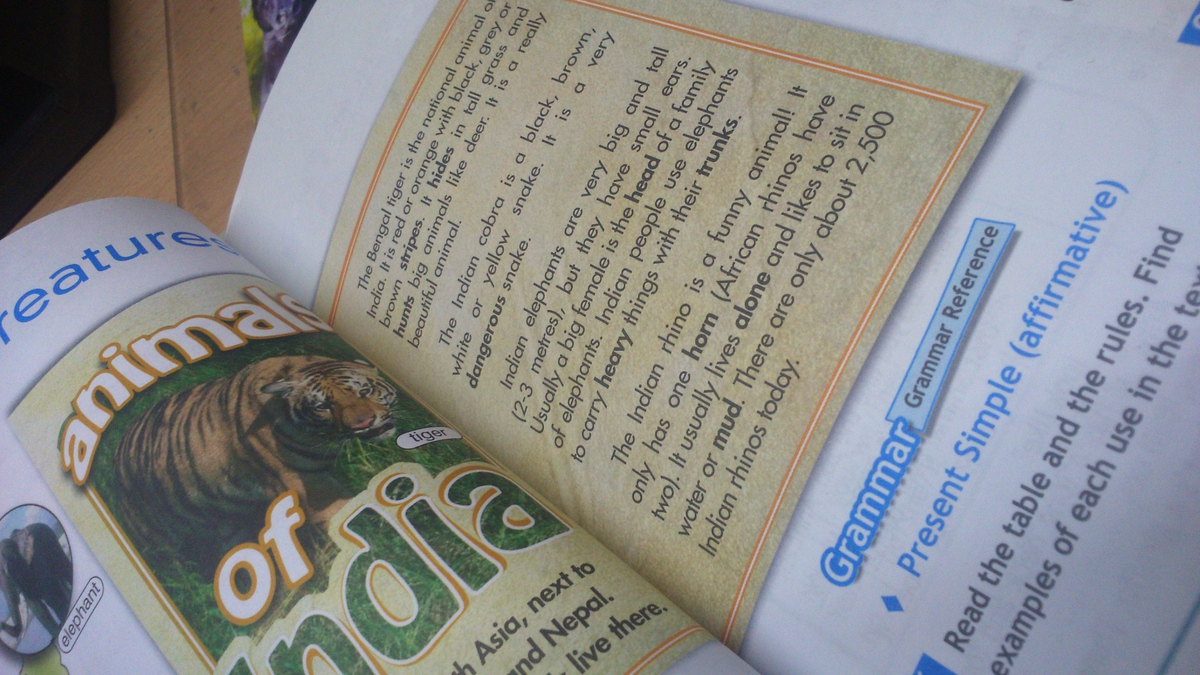 reatures
animals
of
India
tiger
elephant
th Asia, next to
and Nepal.
live there.
The Bengal tiger is the national animal of
India. It is red or orange with black, grey or
brown stripes. It hides in tall grass and
hunts big animals like deer. It is a really
beautiful animal.
The Indian cobra is a black, brown,
white or yellow snake. It is a very
dangerous snake.
Indian elephants are very big and tall
(2-3 metres), but they have small ears.
Usually a big female is the head of a family
of elephants. Indian people use elephants
to carry heavy things with their trunks.
The Indian rhino is a funny animal! It
only has one horn (African rhinos have
two). It usually lives alone and likes to sit in
water or mud. There are only about 2,500
Indian rhinos today.
Grammar
Grammar Reference
Present Simple (affirmative)
Read the table and the rules. Find
examples of each use in the text